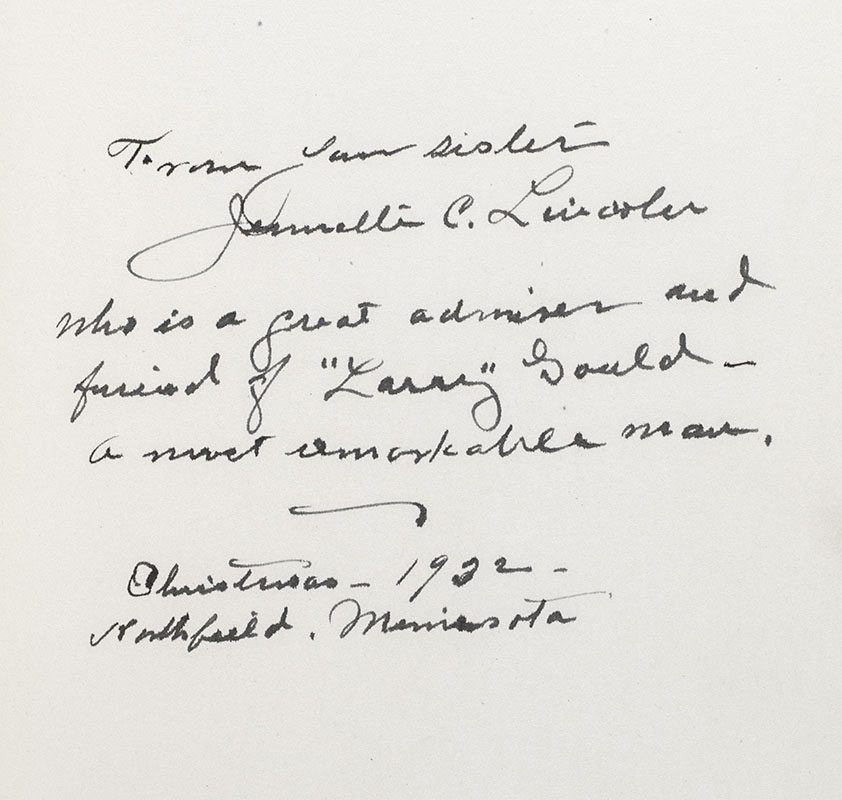 From your sister
Jennette C. Lincoln
who is a great admirer and
friend of "Larry" Gould –
a most remarkable man.
Christmas – 1932 –
Northfield. Minnesota